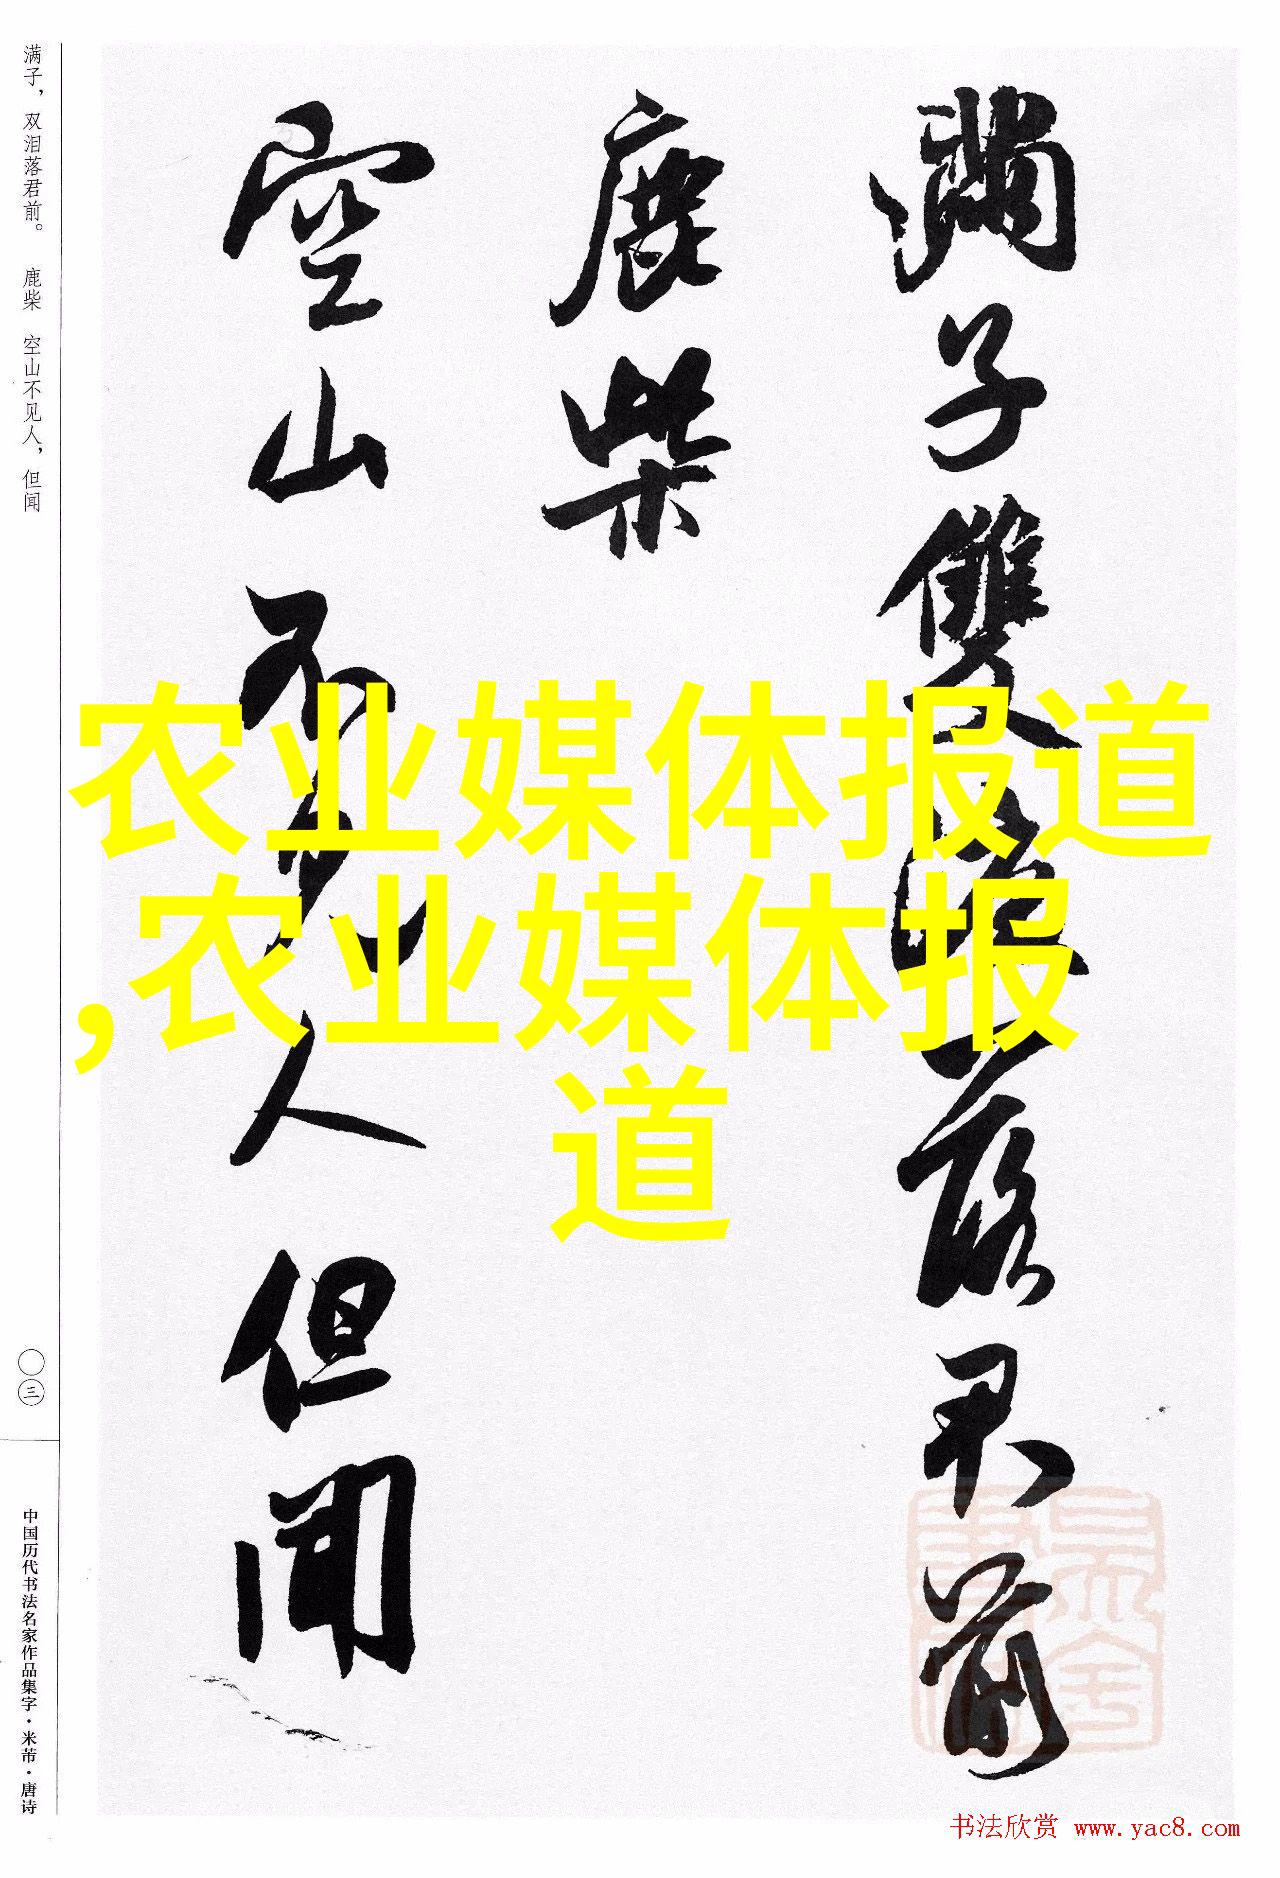 满子，双泪落君前。 鹿柴 空山不见人，但闻
滿子雙淚落君前
鹿柴
空山不見人但聞
农业媒体报道
,农业媒体报
道
〇三
中国历代书法名家作品集字·米芾·唐诗
书法欣赏 www.yac8.com